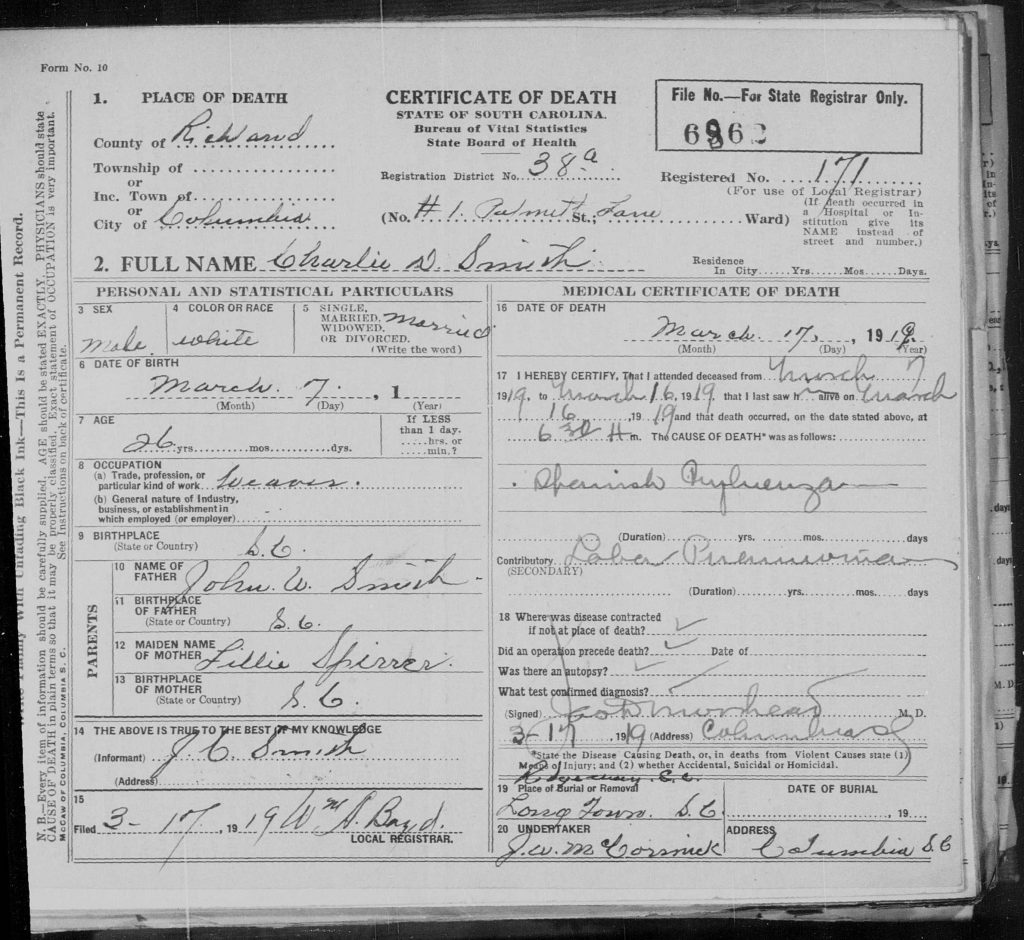 Form No. 10
1. PLACE OF DEATH
County of Richland
Township of
or
Inc. Town of
or
City of Columbia
CERTIFICATE OF DEATH
STATE OF SOUTH CAROLINA.
Bureau of Vital Statistics
State Board of Health
Registration District No. 38a
(No. # 1. Palmetto St., Lane Ward)
File No.—For State Registrar Only.
6862
Registered No. 171
(For use of Local Registrar)
(If death occurred in
a Hospital or In-
stitution give its
NAME instead of
street and number.)
2. FULL NAME Charlie D. Smith
Residence
In City Yrs. Mos. Days.
PERSONAL AND STATISTICAL PARTICULARS
3 SEX
Male
4 COLOR OR RACE
white
5 SINGLE,
MARRIED,
WIDOWED,
OR DIVORCED.
(Write the word)
Married
6 DATE OF BIRTH
March. 7. , 1
(Month) (Day) (Year)
7 AGE
26 yrs. mos. dys.
If LESS
than 1 day.
hrs. or
min.?
8 OCCUPATION
(a) Trade, profession, or
particular kind of work Weaver.
(b) General nature of Industry,
business, or establishment in
which employed (or employer)
9 BIRTHPLACE
(State or Country) S.C.
PARENTS
10 NAME OF
FATHER John W. Smith
11 BIRTHPLACE
OF FATHER
(State or Country) S.C.
12 MAIDEN NAME
OF MOTHER Lillie
13 BIRTHPLACE
OF MOTHER
(State or Country) S.C.
14 THE ABOVE IS TRUE TO THE BEST OF MY KNOWLEDGE
(Informant) J.C. Smith
(Address)
15
Filed 3-17, 1919 Wm A. Boyd.
LOCAL REGISTRAR.
MEDICAL CERTIFICATE OF DEATH
16 DATE OF DEATH
March. 17, , 1919
(Month) (Day) (Year)
17 I HEREBY CERTIFY, That I attended deceased from March 7
1919, to March 16, 1919 that I last saw h alive on March
16, 1919 and that death occurred, on the date stated above, at
6 30 m. The CAUSE OF DEATH* was as follows:
Spanish Influenza
(Duration) yrs. mos. days
Contributory Lobar Pneumonia
(SECONDARY)
(Duration) yrs. mos. days
18 Where was disease contracted
if not at place of death?
Did an operation precede death? Date of
Was there an autopsy?
What test confirmed diagnosis?
(Signed) M. D.
3-17 1919 (Address) Columbia
*State the Disease Causing Death, or, in deaths from Violent Causes state (1)
Means of Injury; and (2) whether Accidental, Suicidal or Homicidal.
Ridgeway S.C.
19 Place of Burial or Removal
Long Town. S.C.
DATE OF BURIAL
, 19
20 UNDERTAKER
J.W. McCormick
ADDRESS
Columbia S.C
Write Plainly With Unfading Black Ink—This Is a Permanent Record.
N. B.—Every item of information should be carefully supplied. AGE should be stated EXACTLY. PHYSICIANS should state
CAUSE OF DEATH in plain terms so that it may be properly classified. Exact statement of OCCUPATION is very important.
See Instructions on back of certificate.
McCAW OF COLUMBIA, COLUMBIA S. C.